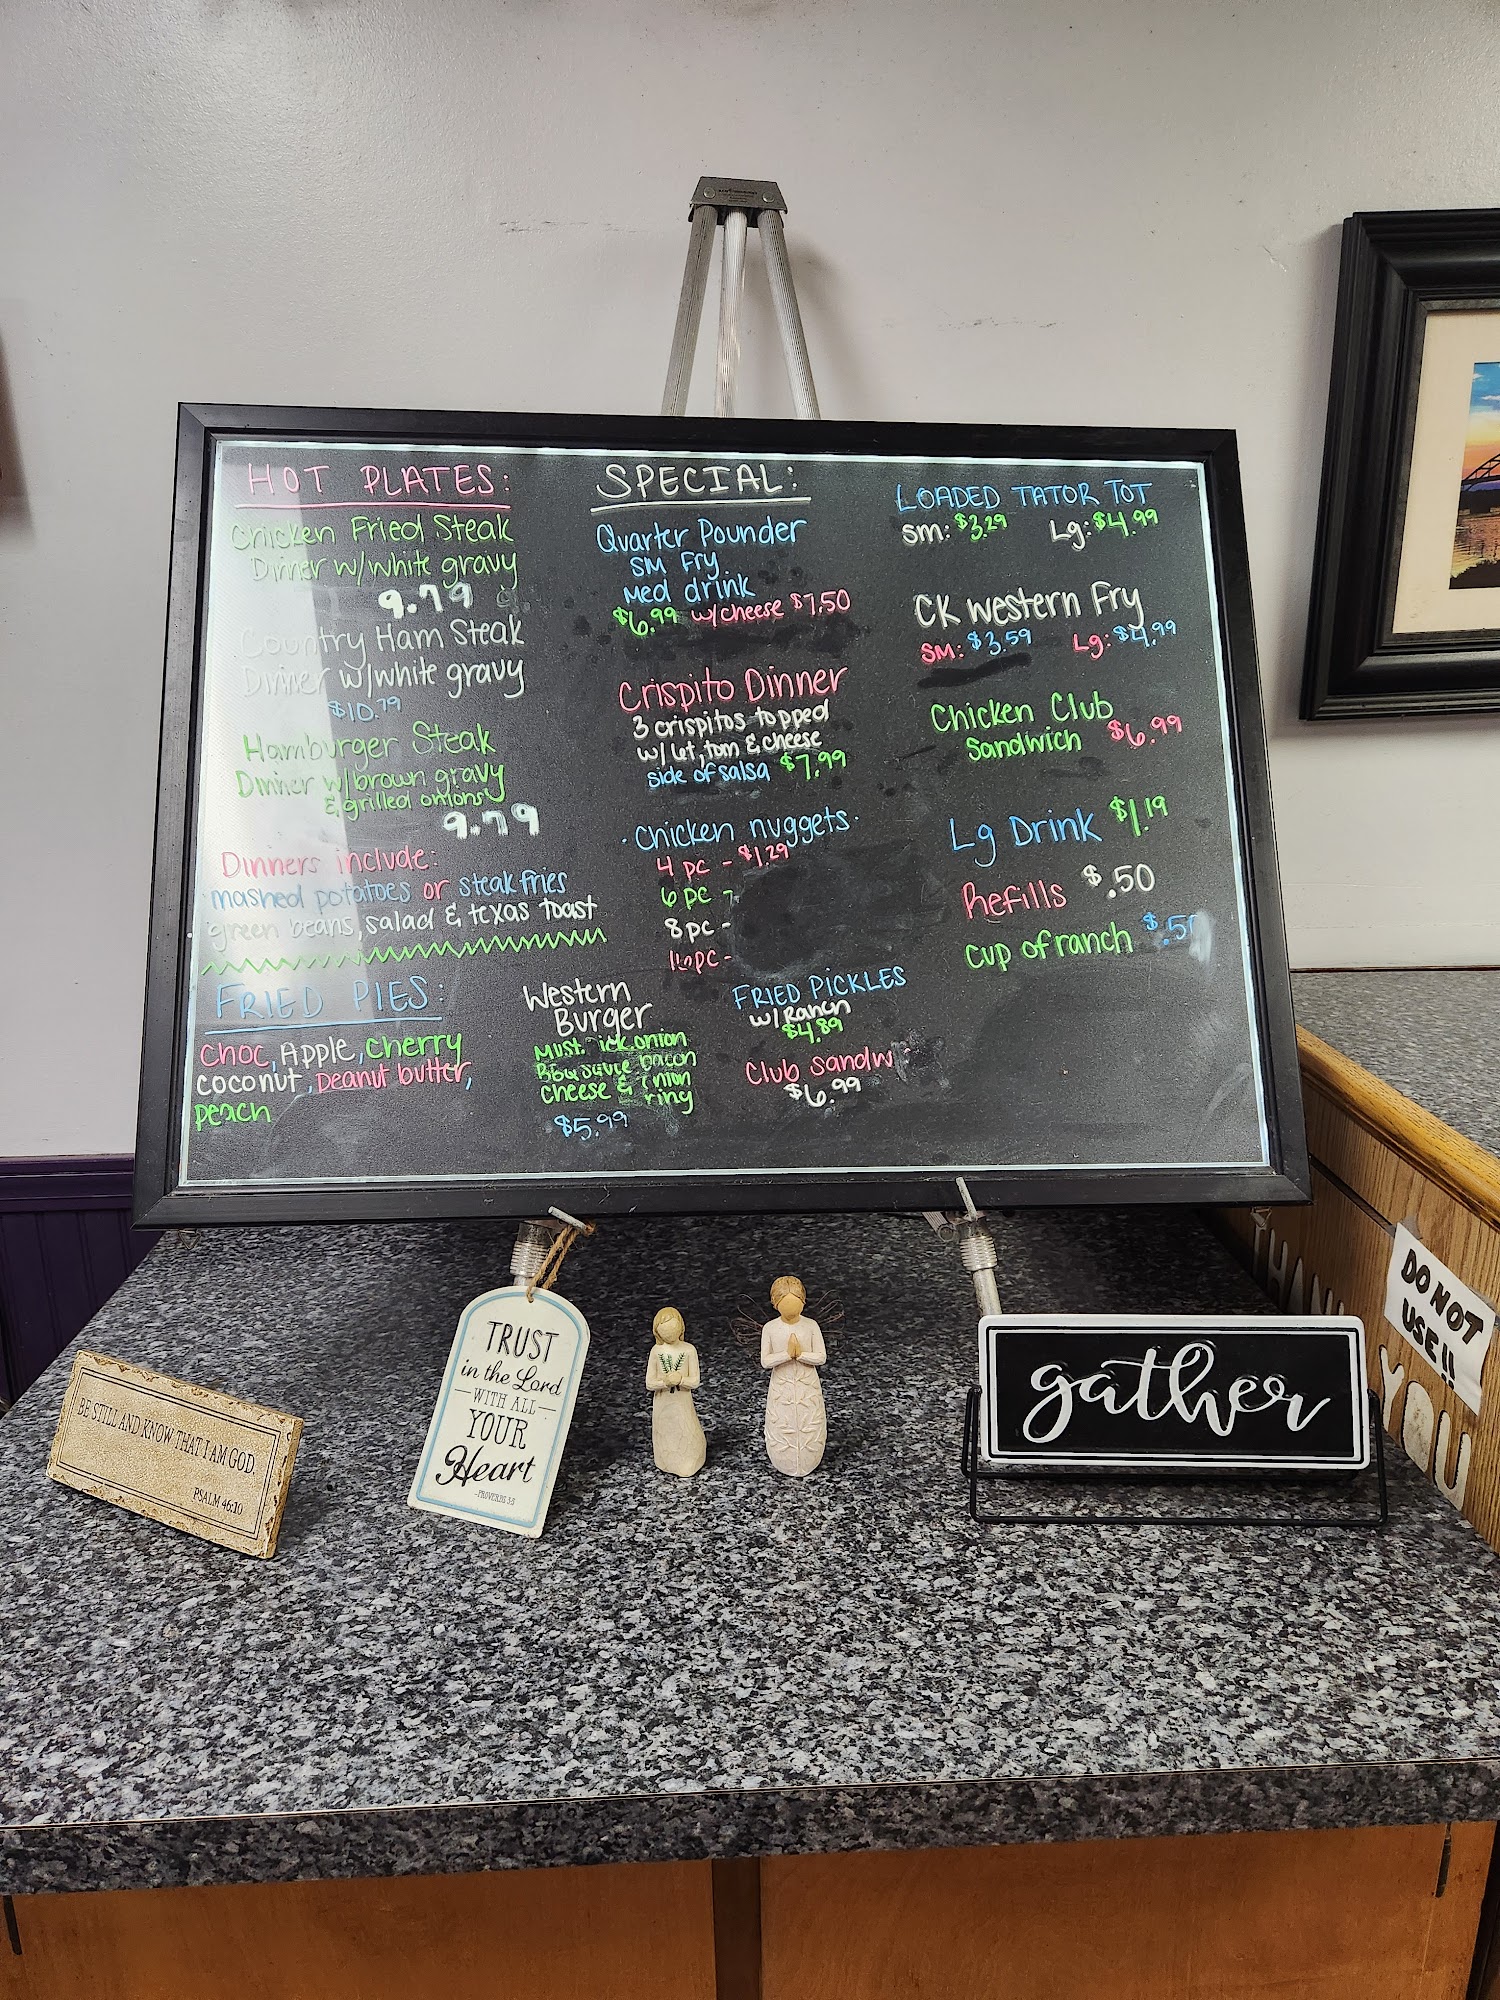 HOT PLATES:
Chicken Fried Steak
Dinner w/white gravy
9.79
Country Ham Steak
Dinner w/white gravy
$10.79
Hamburger Steak
Dinner w/brown gravy
& grilled onions
9.79
Dinners include:
mashed potatoes or steak fries
green beans, salad & texas toast
FRIED PIES:
Choc, Apple, Cherry
coconut, peanut butter,
peach
SPECIAL:
Quarter Pounder
SM Fry
Med drink
$6.99 w/cheese $7.50
Crispito Dinner
3 crispitos topped
w/ let, tom & cheese
side of salsa $7.99
Chicken nuggets
4 pc - $1.29
6 pc -
8 pc -
pc -
Western
Burger
Must. ick onion
BBQ sauce bacon
cheese & onion
ring
$5.99
FRIED PICKLES
w/ Ranch
$4.89
Club sandw
$6.99
LOADED TATOR TOT
SM: $3.29 Lg: $4.99
CK Western Fry
SM: $3.59 Lg: $4.99
Chicken Club
Sandwich $6.99
Lg Drink $1.19
Refills $.50
Cup of ranch
BE STILL AND KNOW THAT I AM GOD.
PSALM 46:10
TRUST
in the Lord
WITH ALL
YOUR
Heart
-PROVERBS 3:5
gather
DO NOT
USE!!
THANK
YOU